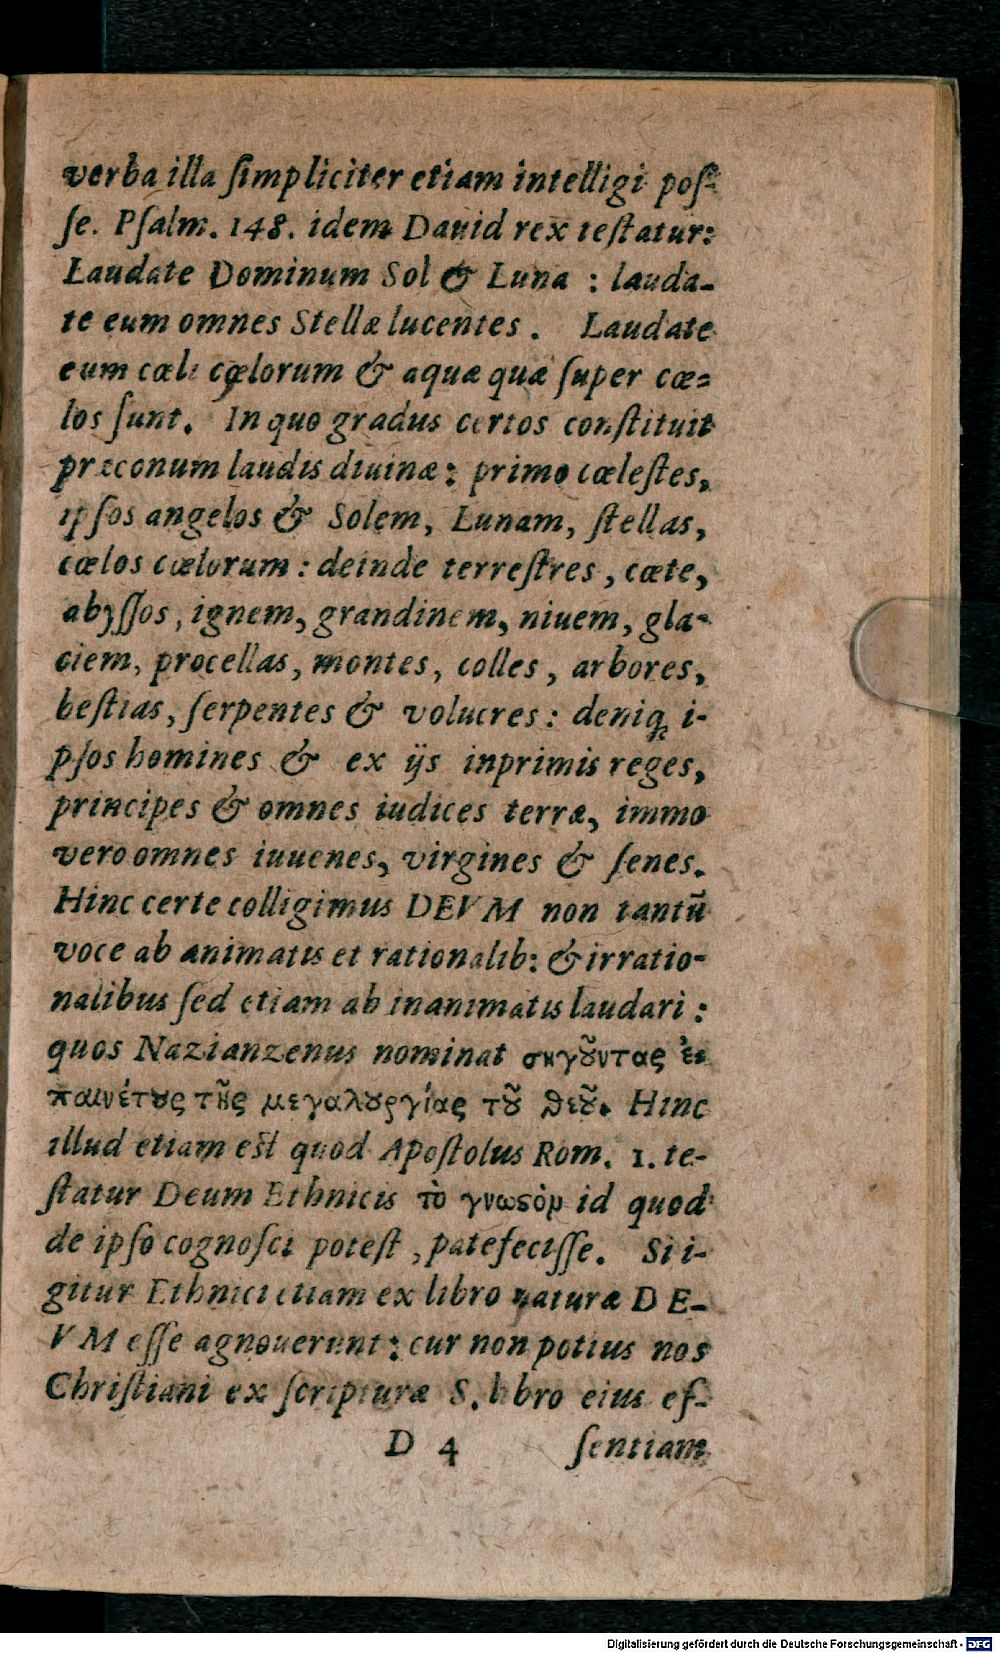 verba illa ſimpliciter etiam intelligi poſ-
ſe. Pſalm. 148. idem Dauid rex teſtatur:
Laudate Dominum Sol & Luna : lauda-
te eum omnes Stellæ lucentes. Laudate
eum cœli cœlorum & aquæ quæ ſuper cœ=
los ſunt. In quo gradus certos conſtituit
præconum laudis diuinæ: primo cœleſtes,
ipſos angelos & Solem, Lunam, ſtellas,
cœlos cœlorum : deinde terreſtres, cœte,
abyſſos, ignem, grandinem, niuem, gla-
ciem, procellas, montes, colles, arbores,
beſtias, ſerpentes & volucres: deniq; i-
pſos homines & ex ijs inprimis reges,
principes & omnes iudices terræ, immo
vero omnes iuuenes, virgines & ſenes.
Hinc certe colligimus DEVM non tantũ
voce ab animatis et rationalib: & irratio-
nalibus ſed etiam ab inanimatis laudari :
quos Nazianzenus nominat σιγȣ͂ντας ἐ-
παινέτȣς τῆς μεγαλȣργίας τȣ͂ θεȣ͂. Hinc
illud etiam eſt quod Apoſtolus Rom. 1. te-
ſtatur Deum Ethnicis τὸ γνωϛὸν id quod
de ipſo cognoſci poteſt, patefeciſſe. Si i-
gitur Ethnici etiam ex libro naturæ DE-
VM eſſe agnouerunt: cur non potius nos
Chriſtiani ex ſcripturæ S. libro eius eſ-
D 4 ſentiam
Digitalisierung gefördert durch die Deutsche Forschungsgemeinschaft - DFG